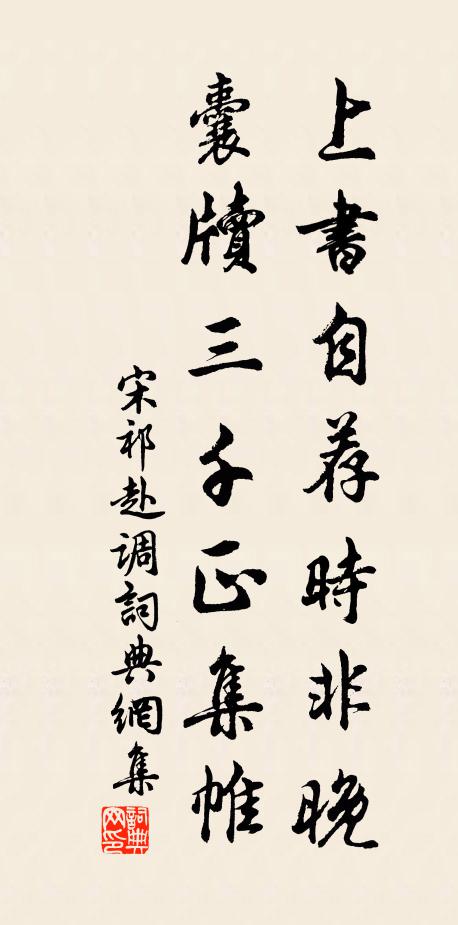 上書自荐時非晚
囊牘三千正集帷
宋祁赴调詞典網集
詞典
网印